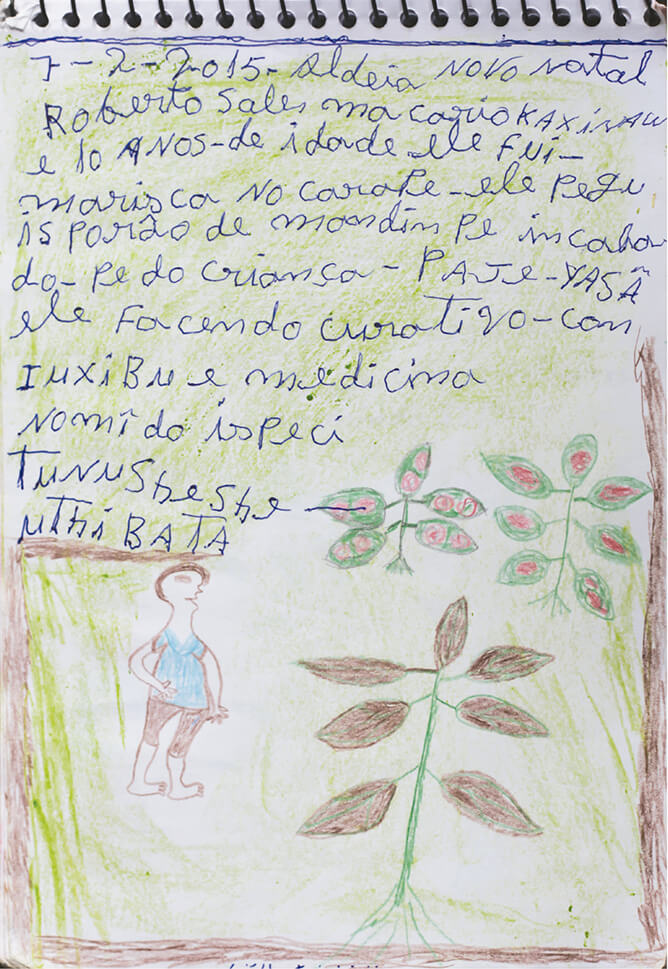 7-2-2015- Aldeia NOVO Natal
Roberto Sales macario KAXINAW
e 10 ANOS-de idade ele FUi-
marisca NO carape-ele pegu
is porão de mandim pe incaba
do-pe do criança-PAJE-YASÃ
ele Facendo curativo-com
IUXIBU e medicina
NOMi do ispeci
TUNUSheshe
UThi BATA